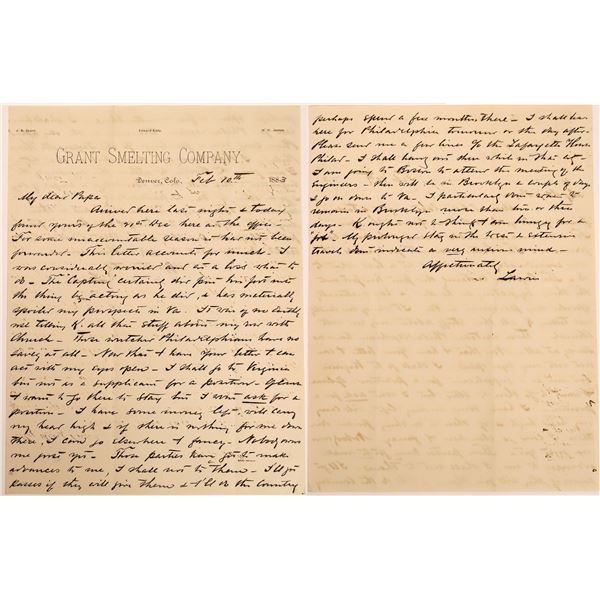 J. B. Grant.
GRANT SMELTING COMPANY.
Denver, Colo. Feb 10th 1883
My dear Papa
Arrived here last night & today
found yours of the Dec here at the office.
For some unaccountable reason it has not been
forwarded. This letter accounts for much. I
was considerably worried and at a loss what to
do. The Captain certainly did put his foot into
the thing by acting as he did, & has materially
spoiled my prospects in Va. It was of no earthly
use telling K. all that stuff about my row with
Church. Those Philadelphians have no
at all. Now that I have your letter I can
act with my eyes open. I shall go to Virginia
but not as a supplicant for a position. Of course
I want to go there to stay but I won't ask for a
position. I have some money left, will carry
my head high & if there is nothing for me down
there, I can go elsewhere I fancy. Nobody owes
me yet. Those parties have got to make
advances to me, I shall not to them. I'll get
passes if they will give them & I'll do the country
perhaps spend a few months there. I shall leave
here for Philadelphia tomorrow or the day after.
Please send me a few lines to the Lafayette House
Philad. I shall hang out there while in that city
I am going to Boston to attend the meeting of the
Engineers. then will be in Brooklyn a couple of days
I go down to Va. I particularly don't want to
remain in Brooklyn more than two or three
days. K ought not to think I am hungry for a
job. My prolonged stay in the West & extensive
travels don't indicate a very anxious mind.
Affectionately